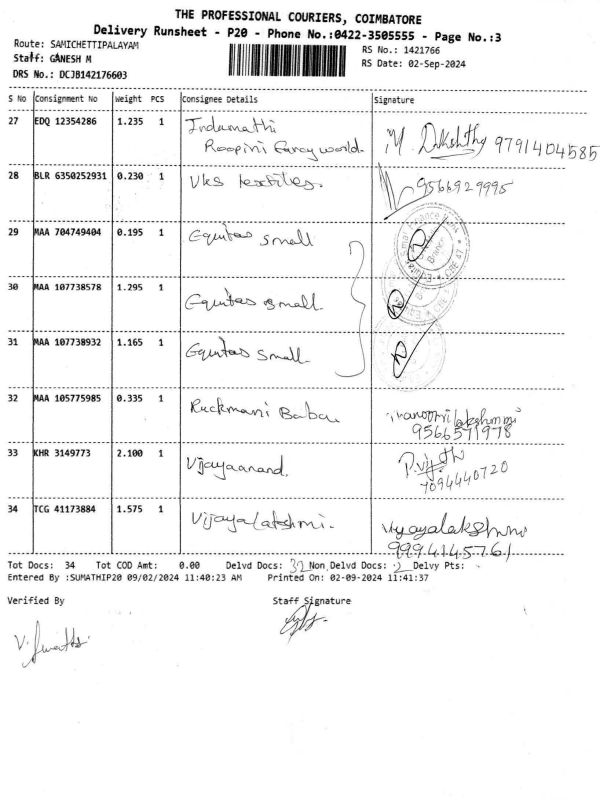 THE PROFESSIONAL COURIERS, COIMBATORE
Delivery Runsheet - P20 - Phone No.:0422-3505555 - Page No.:3
Route: SAMICHETTIPALAYAM
Staff: GANESH M
DRS No.: DCJB142176603
RS No.: 1421766
RS Date: 02-Sep-2024
S No Consignment No Weight PCS Consignee Details Signature
27 EDQ 12354286 1.235 1 Indumathi
Roopini Fancy world. M. 9791404585
28 BLR 6350252931 0.230 1 Vks textiles. 9566929995
29 MAA 704749404 0.195 1 Equitas small
30 MAA 107738578 1.295 1 Equitas small.
31 MAA 107738932 1.165 1 Equitas small.
32 MAA 105775985 0.335 1 Ruckmani Babu
9566571978
33 KHR 3149773 2.100 1 Vijayaanand.
7094440720
34 TCG 41173884 1.575 1 Vijayalakshmi. Vijayalakshmi
9994145761
Tot Docs: 34 Tot COD Amt: 0.00 Delvd Docs: 32 Non Delvd Docs: 2 Delvy Pts:
Entered By :SUMATHIP20 09/02/2024 11:40:23 AM Printed On: 02-09-2024 11:41:37
Verified By Staff Signature